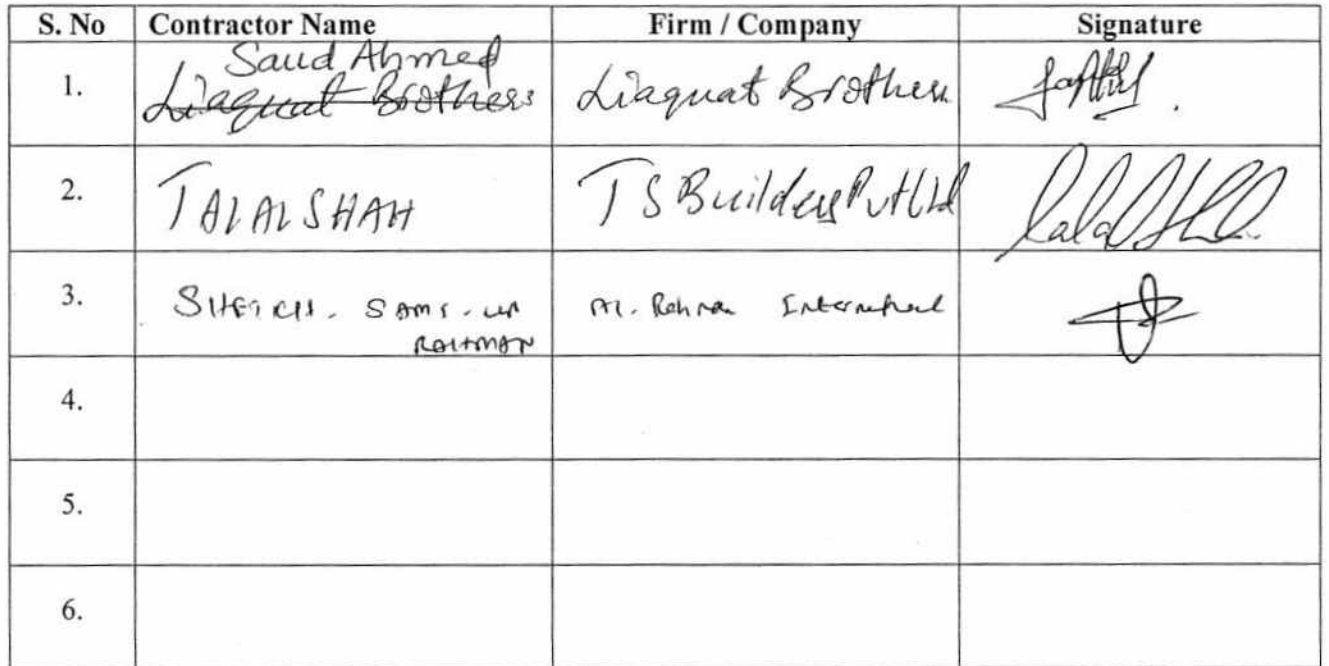 S. No Contractor Name Firm / Company Signature
Saud Ahmed
1. Liaquat Brothers Liaquat Brothers
2. TALAL SHAH TS Builders Pvt Ltd
3. SHEIKH. SAMI. UR Al. Rahman International
RAHMAN
4.
5.
6.